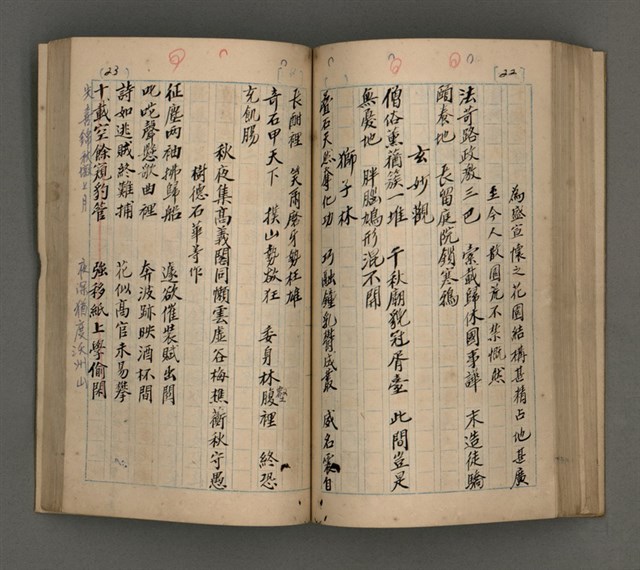 (22)
為盛宣懷之花園結構甚精占地甚廣
至今人散園荒不禁慨然
法苛路政激三巴 索載歸休國事譁 末造徒驕
醧養地 長留庭院鎖寒鴉
玄妙觀
僧俗熏蕕簇一堆 千秋廟貌冠胥臺 此間豈是
無憂地 胖腦鳩形混不開
獅子林
疊石天然奪化功 巧融鐘乳聳成叢 威名震自
(23)
長酣裡 笑爾磨牙勢枉雄
奇石甲天下 摸山勢欲狂 委身林腹裡 終恐
充飢腸
秋夜集高義閣同懶雲虛谷梅樵蘅秋守愚
樹德石華等作
征塵兩袖拂歸船 遽欲催裝賦出關
叱咤聲懸歌曲裡 奔波跡映酒杯間
詩如逃賊終難捕 花似高官未易攀
十載空餘窺豹管 強移紙上學偷閑
夜深猶度浜州山